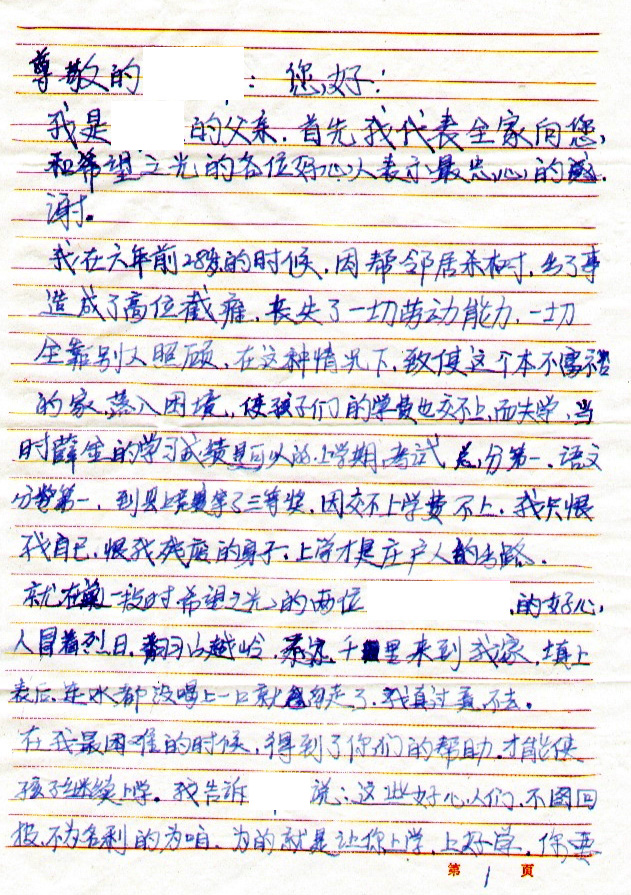 尊敬的 : 您好!
我是 的父亲.首先我代表全家向您,
和希望之光的各位好心人表示最忠心的感.
谢。
我在六年前28岁的时候.因帮邻居杀树.出了事
造成了高位截瘫.丧失了一切劳动能力.一切
全靠别人照顾.在这种情况下.致使这个本不富裕
的家.落入困境.使孩子们的学费也交不上.而失学.当
时薛金的学习成绩是可以的.上学期.考试总分第一.语文
分数第一.到县上竞赛拿了三等奖.因交不上学费不上.我只恨
我自己.恨我残废的身子.上学才是庄户人的出路.
就在前一段时希望之光的两位 .的好心,
人冒着烈日.翻山越岭. 千里来到我家.填上
表后.连水都没喝上一口就走了.我真过意不去。
在我最困难的时候.得到了你们的帮助.才能使
孩子继续上学。我告诉 说:这些好心人们.不图回
报.不为名利的为咱.为的就是让你上学.上好学.你要
第 1 页